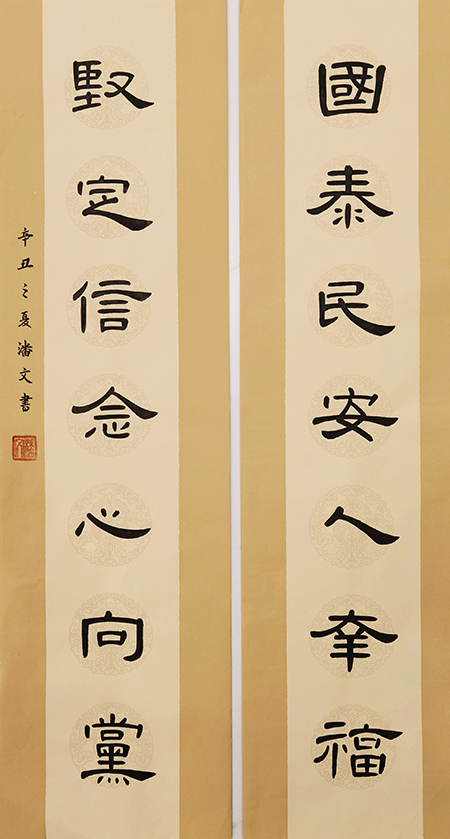 國泰民安人幸福
堅定信念心向黨
辛丑之夏潘文書